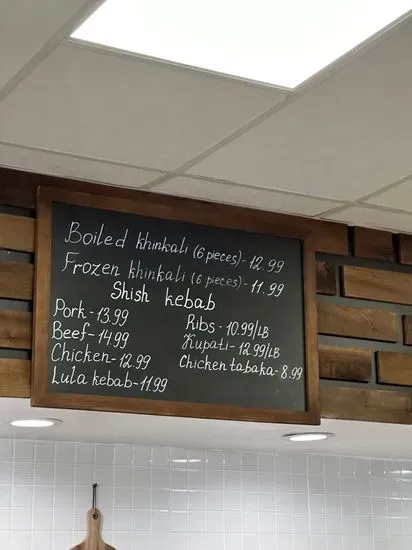 Boiled khinkali (6 pieces) - 12.99
Frozen khinkali (6 pieces) - 11.99
Shish kebab
Pork - 13.99
Beef - 14.99
Chicken - 12.99
Lula kebab - 11.99
Ribs - 10.99/LB
Kupati - 12.99/LB
Chicken tabaka - 8.99